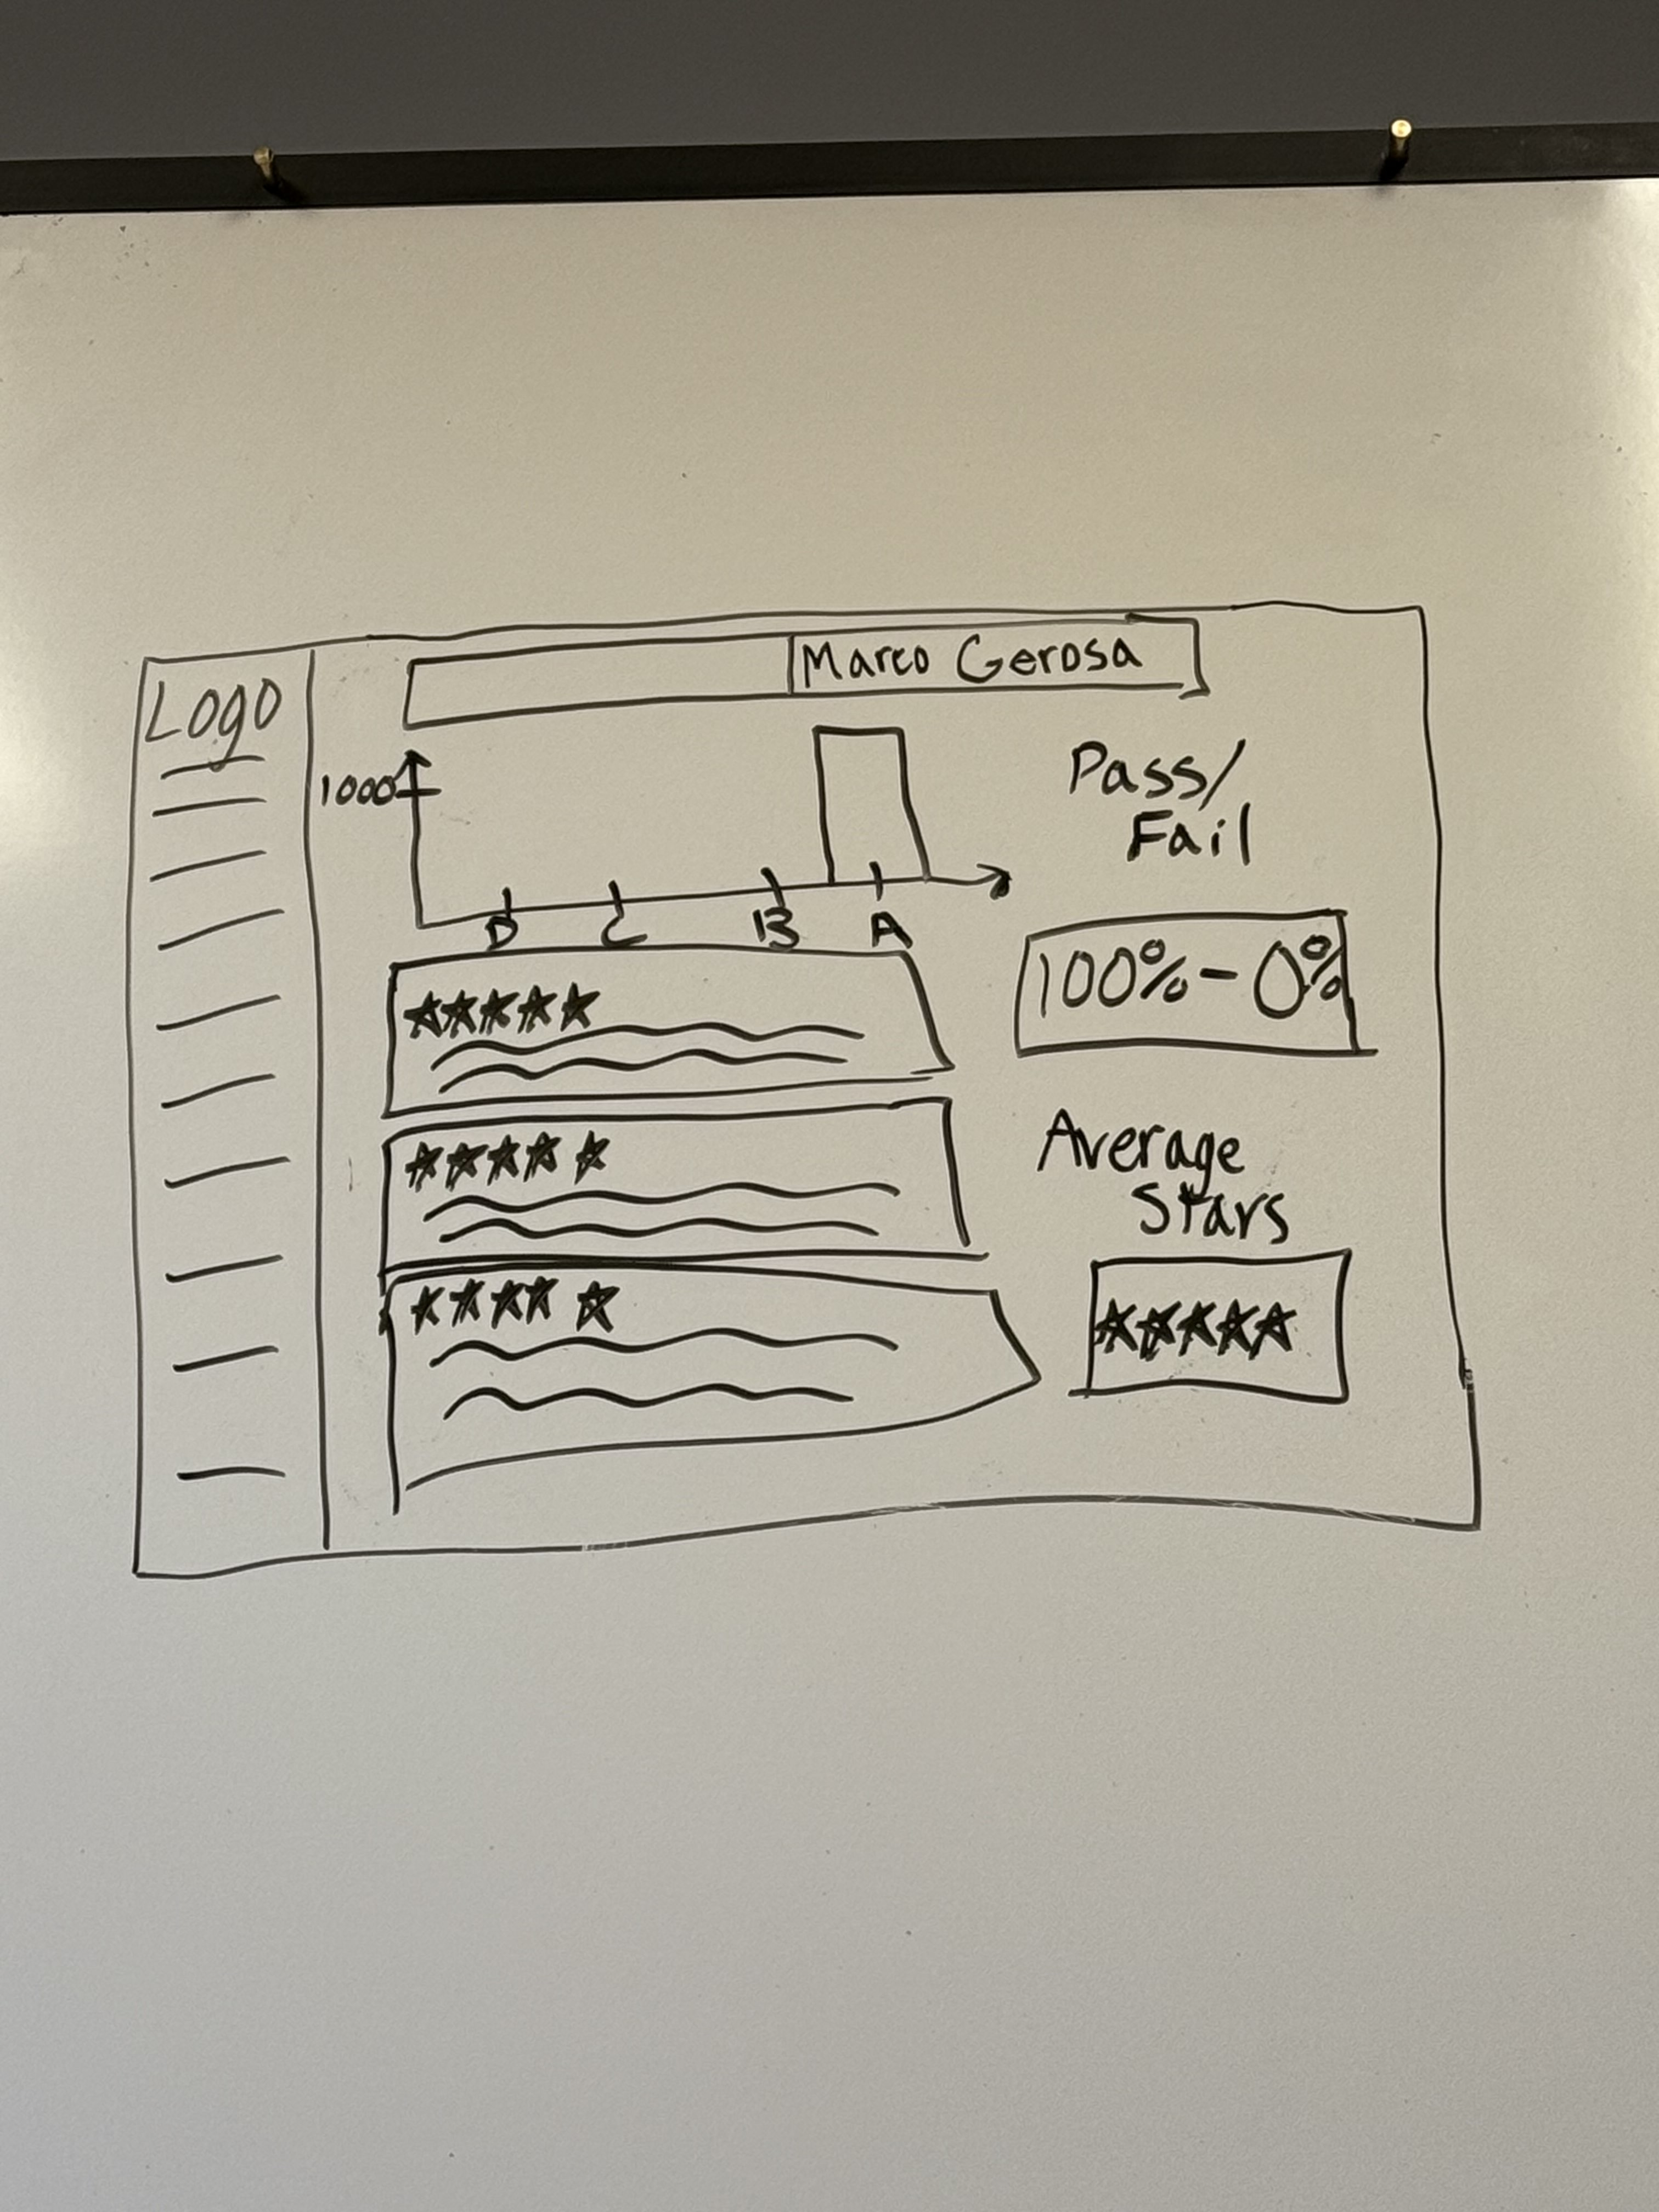 Logo
Marco Gerosa
1000
D C B A
Pass/
Fail
100%-0%
Average
Stars